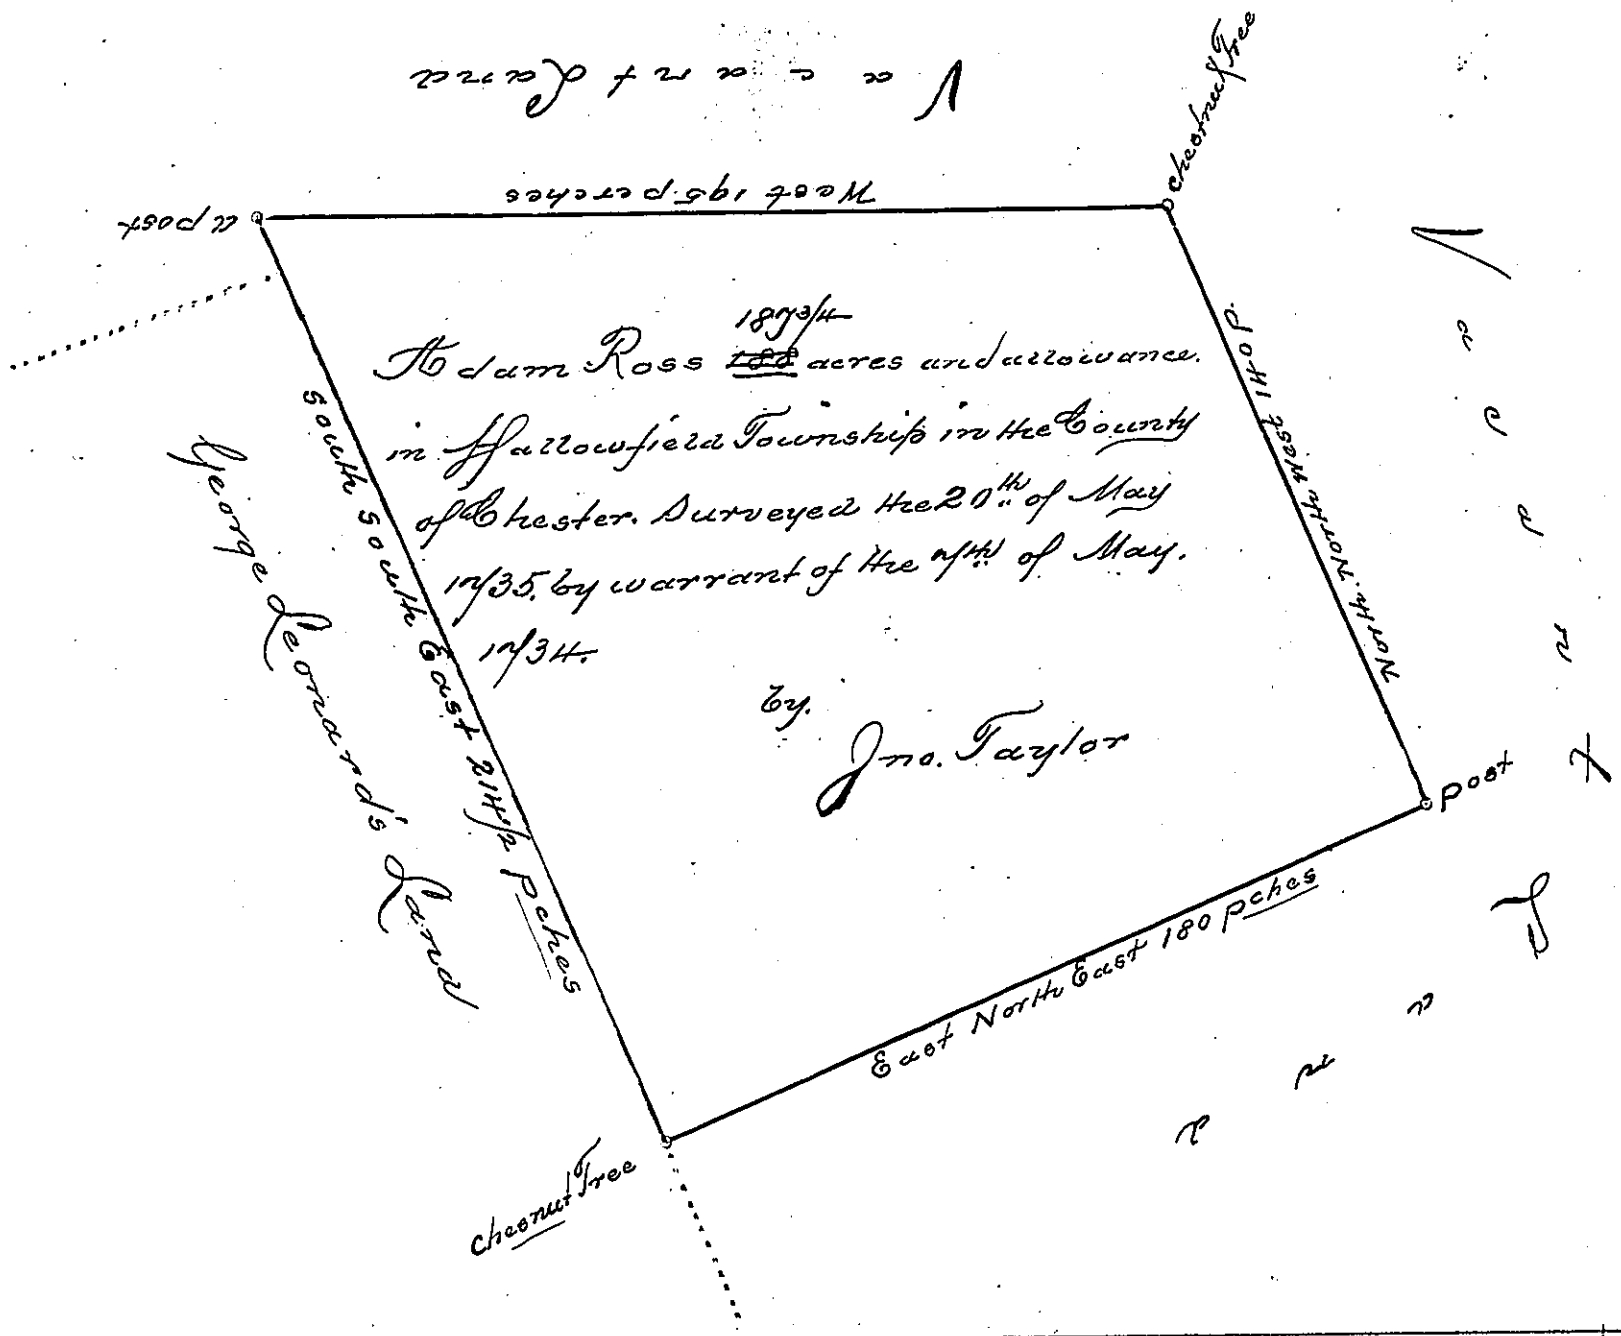 Vacant Land
chestnut Tree
West 195 perches
a post
187 3/4
Adam Ross 188 acres and allowance.
in ffallowfield Township in the County
of Chester. Surveyed the 20th of May
1735. by warrant of the 7th of May.
1734.
by.
Jno. Taylor
South South East 214 1/2 pches
George Leonard's Land
North. North West 141 p.
Vacant Land
post
East North East 180 pches
chesnut Tree